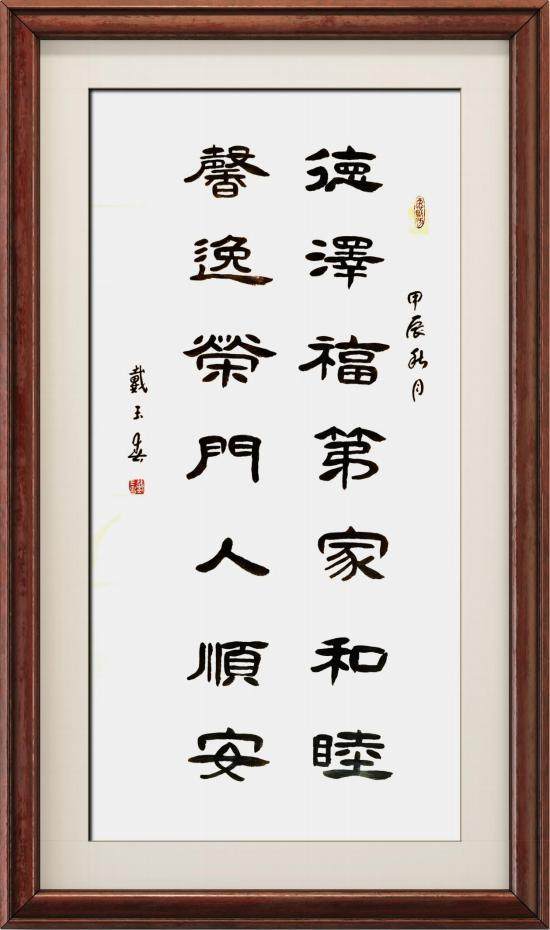 甲辰秋月
德澤福第家和睦
馨逸榮門人順安
戴玉春